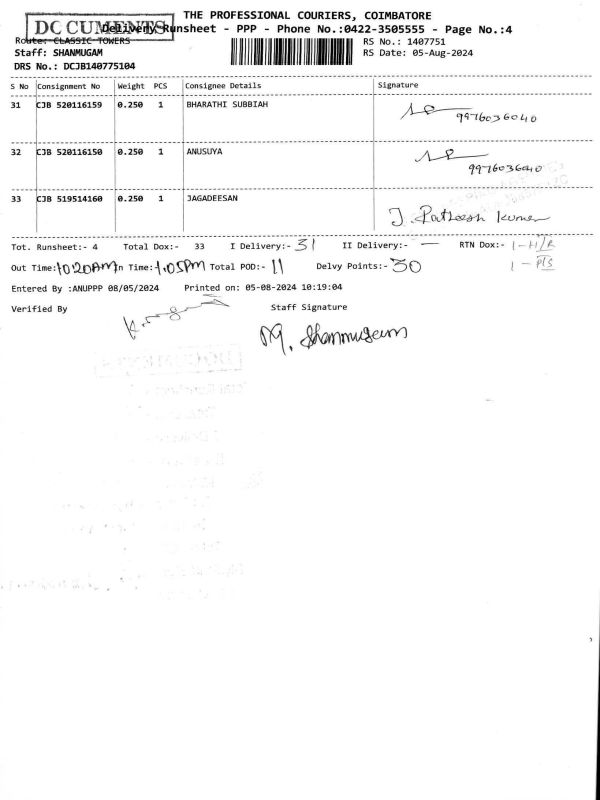 THE PROFESSIONAL COURIERS, COIMBATORE
DOCUMENTS
Delivery Runsheet - PPP - Phone No.:0422-3505555 - Page No.:4
Route: CLASSIC TOWERS
RS No.: 1407751
Staff: SHANMUGAM
RS Date: 05-Aug-2024
DRS No.: DCJB140775104
S No Consignment No Weight PCS Consignee Details Signature
31 CJB 520116159 0.250 1 BHARATHI SUBBIAH
9976036040
32 CJB 520116150 0.250 1 ANUSUYA
9976036040
33 CJB 519514160 0.250 1 JAGADEESAN
J. Patheesh Kumar
Tot. Runsheet:- 4 Total Dox:- 33 I Delivery:- 31 II Delivery:- — RTN Dox:- 1-H/R
Out Time:10:20AM In Time:1.05PM Total POD:- 11 Delvy Points:- 30 1 - P/S
Entered By :ANUPPP 08/05/2024 Printed on: 05-08-2024 10:19:04
Verified By Staff Signature
M. Shanmugam